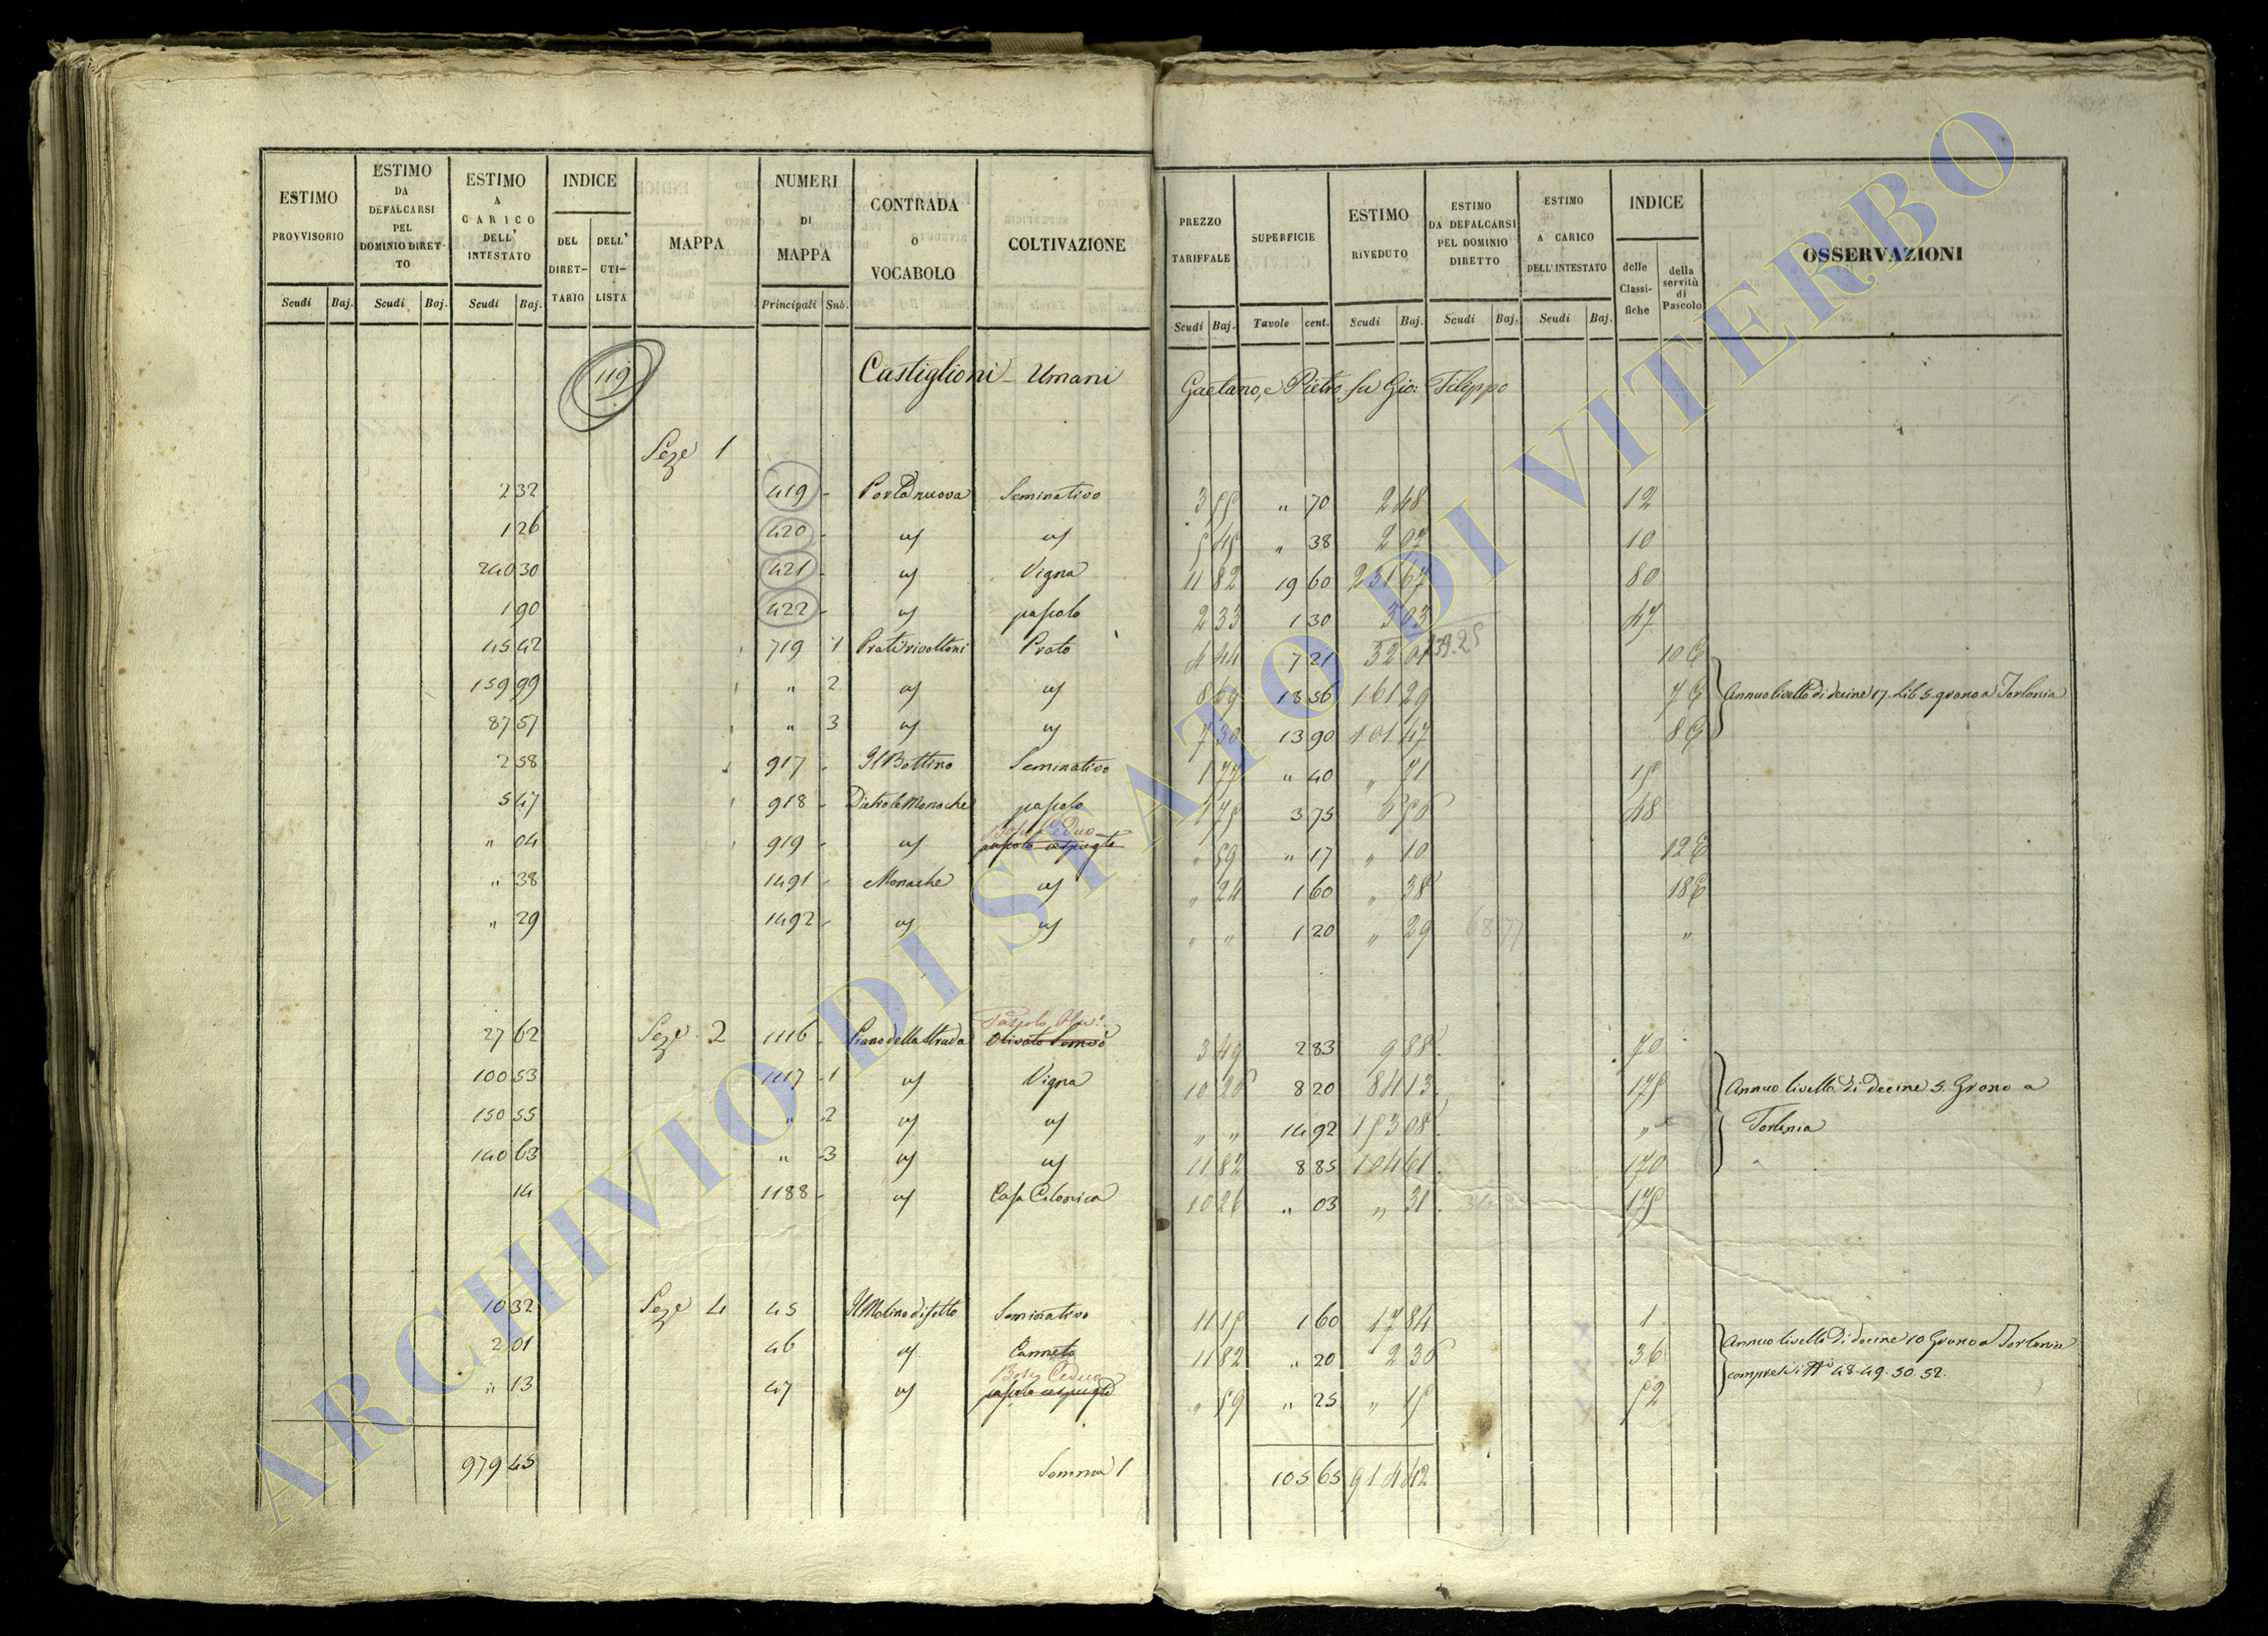 ESTIMO PROVVISORIO | ESTIMO DA DEFALCARSI PEL DOMINIO DIRETTO | ESTIMO A CARICO DELL' INTESTATO | INDICE DEL DIRETTARIO | DELL' UTILISTA | MAPPA | NUMERI DI MAPPA | CONTRADA O VOCABOLO | COLTIVAZIONE | PREZZO TARIFFALE | SUPERFICIE | ESTIMO RIVEDUTO | ESTIMO DA DEFALCARSI PEL DOMINIO DIRETTO | ESTIMO A CARICO DELL' INTESTATO | INDICE delle Classifiche | della servitù di Pascolo | OSSERVAZIONI
Scudi Baj. Scudi Baj. Scudi Baj. Principali Sub. Scudi Baj. Tavole cent. Scudi Baj. Scudi Baj. Scudi Baj.
119 Castiglioni - Umani Gaetano, e Pietro fu Gio: Filippo
Seze 1
2 32 419 - Porta nuova Seminativo 3 55 " 70 2 48 12
1 26 420 - " 38 10
240 30 421 - Vigna 11 82 19 60 231 67 80
1 90 422 - pascolo 2 33 1 30 3 03 47
45 42 719 1 Prati rivoltoni Prato 4 44 7 21 32 01 139.25 10 E
159 99 " 2 161 29 7 E Annuo livello di decine 17. Lib 5. grano a Torlonia
87 57 " 3 7 30 13 90 101 47 8 E
2 58 917 - Il Bottino Seminativo 1 77 " 40 " 71 15
5 47 918 - Dietro le Monache pascolo 1 75 3 75 48
" 04 919 - Bosco Ceduo pascolo cespugto " 59 " 17 " 10 12 E
" 38 1491 - Monache " 24 1 60 " 38 18 E
" 29 1492 - " " 1 20 " 29 68 77 "
27 62 Seze 2 1116 - Piano della Strada Pascolo Oliv: 3 49 2 83 9 88 70
100 53 1117 1 Vigna 10 26 8 20 84 13 175 Annuo livello di decine 5. Grano a
150 55 " 2 " " 14 92 153 08 " Torlonia
140 63 " 3 11 82 8 85 104 61 170
14 1188 - Casa Colonica 10 26 " 03 " 31 175
10 32 Seze 4 45 Il Molino di sotto Seminativo 11 15 1 60 17 84 1
2 01 46 Canneto 11 82 " 20 2 36 36 Annuo livello di decine 10 Grano a Torlonia
" 13 47 Bosco Ceduo pascolo cespugto " 59 " 25 " 15 52 compresi i Nri 48-49. 50. 52.
979 45 Somma 1 105 65 914 42
ARCHIVIO DI STATO DI VITERBO